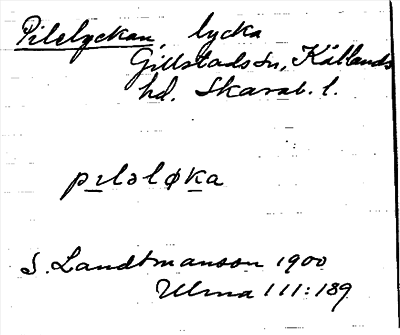 Pilelyckan, lycka
Gillstads sn, Kållands
hd. Skarab. l.
pıləløka
S. Landtmanson 1900
Ulma 111:189